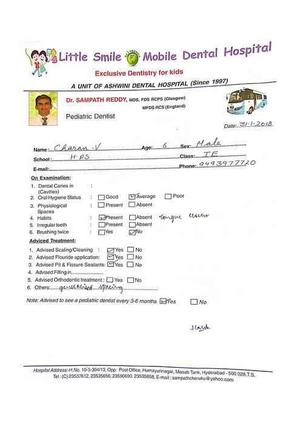 Little Smile Mobile Dental Hospital
Exclusive Dentistry for kids
A UNIT OF ASHWINI DENTAL HOSPITAL (Since 1997)
Dr. SAMPATH REDDY, MDS, FDS RCPS (Glasgow)
MFDS RCS (England)
Pediatric Dentist
Date: 31-1-2018
Name: Charan. V Age: 6 Sex: Male
School: HPS Class: IE
Phone: 9493977720
On Examination:
1. Dental Caries in :
(Cavities)
2. Oral Hygiene Status : Good Average Poor
3. Physiological : Present Absent
Spaces
4. Habits : Present Absent tongue
5. Irregular teeth : Present Absent
6. Brushing twice : Yes No
Advised Treatment:
1. Advised Scaling/Cleaning : Yes No
2. Advised Fluoride application: Yes No
3. Advised Pit & Fissure Sealants: Yes No
4. Advised Filling in
5. Advised Orthodontic treatment: Yes No
6. Others: generalised spacing
Note: Advised to see a pediatric dentist every 3-6 months Yes No
Hospital Address: H.No. 10-3-304/13, Opp. Post Office, Humayunnagar, Masab Tank, Hyderabad - 500 028.T.S.